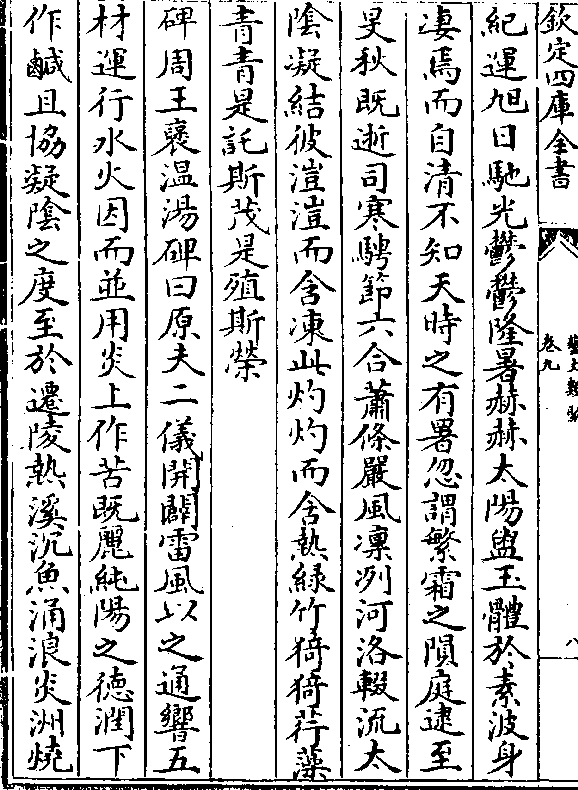 欽定四庫全書
藝文類聚
卷九
八
紀運旭日馳光鬱鬱隆暑赫赫太陽盥玉體於素波身
凄焉而自清不知天時之有暑忽謂繁霜之隕庭逮至
旻秋既逝司寒騁節六合蕭條嚴風凜冽河洛輟流太
陰凝結彼溰溰而含凍此灼灼而含熱緑竹猗猗荇藻
青青是託斯茂是殖斯榮
碑周王褒温湯碑曰原夫二儀開闢雷風以之通響五
材運行水火因而並用炎上作苦既麗純陽之徳潤下
作鹹且協凝陰之度至於遷陵熱溪沉魚涌浪炎洲燒